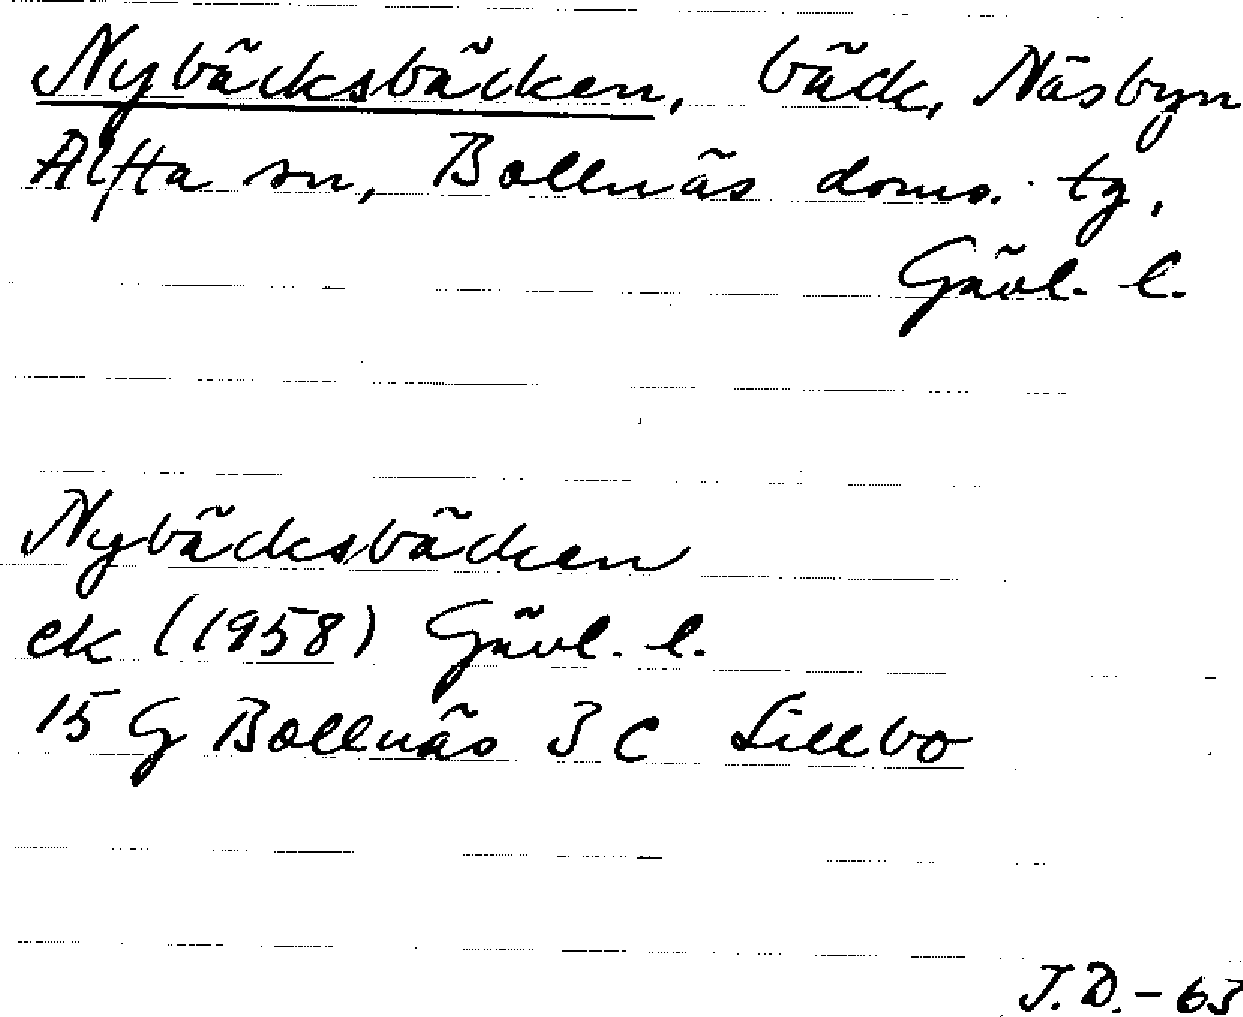 Nybäcksbäcken, bäck, Näsbyn
Alfta sn, Bollnäs doms. tg,
Gävl. l.
Nybäcksbäcken
ek (1958) Gävl. l.
15 G Bollnäs 3 c Lillbo
J.D.-63